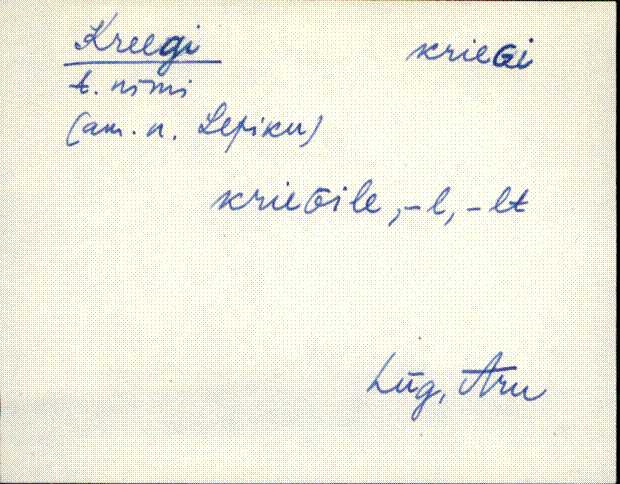 Kreegi krieGi
t. nimi
(am. n. Lepiku)
krieGile, -l, -lt
Lüg, Aru